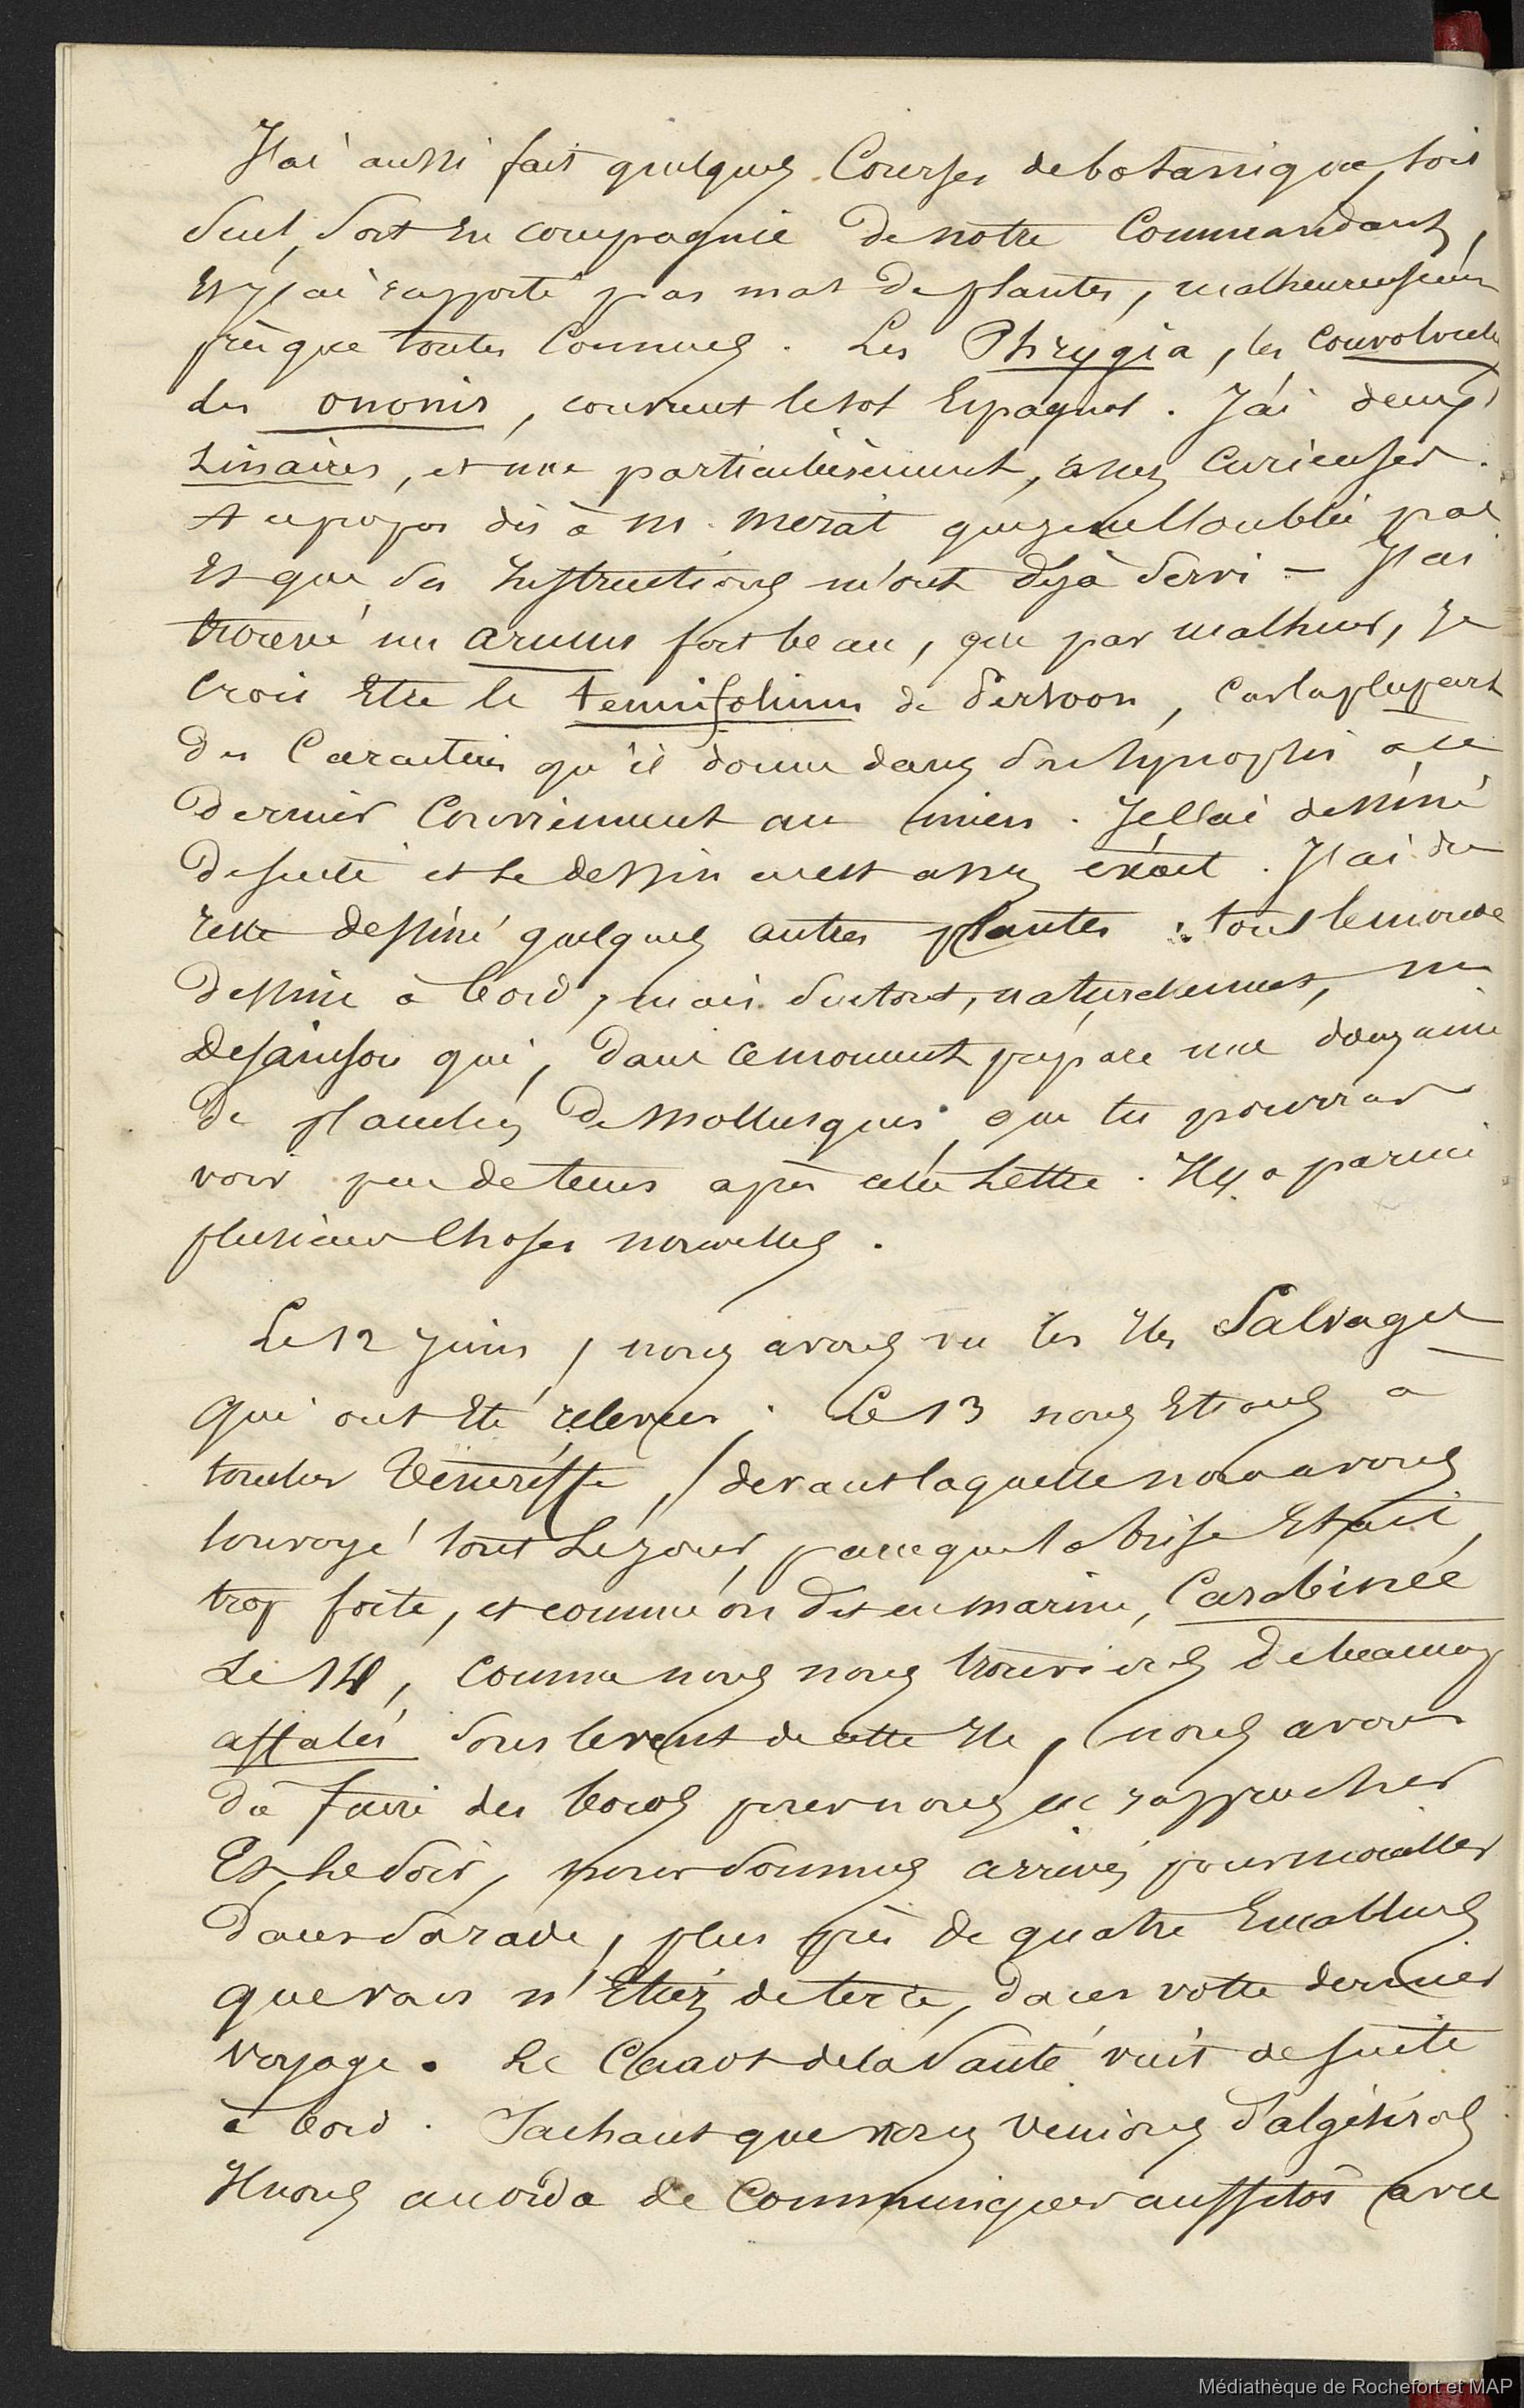 J'ai aussi fait quelques Courses de botanique, soit
Seul, Soit En compagnie De notre Commandant,
Et j'ai rapporté pas mal De plantes, malheureusemen
presque toutes Connues. Les Phrygia, les Convolvulus
les ononis, couvrent le sol Espagnol. J'ai deux
Linaires, et une particulièrement, assez Curieuses.
A ce propos dis à M. Mérat que je ne l'oublie pas
Et que Ses Instructions m'ont déjà Servi – J'ai
trouvé un arum fort beau, que par malheur, Je
Crois Etre le tenuifolium de Persoon, car la plupart
Des Caractères qu'il donne dans Son Synopsis à ce
Dernier Conviennent au mien. Je l'ai dessiné
De suite et le dessin en est assez exact. J'ai du
reste dessiné quelques autres plantes : tout le monde
Dessine à bord, mais Surtout, naturellement, M.
De Sainson qui, Dans ce moment prépare une douzaine
De planches De Mollusques, que tu pourras
voir peu de tems après cette Lettre. Il y a parmi
plusieurs Choses nouvelles.
Le 12 Juin, nous avons vu les Iles Salvages
qui ont Eté relevées ; Le 13 nous Etions à
toucher Ténériffe, devant laquelle nous avons
louvoyé tout Le jour, parceque la brise Etait
trop forte, et comme on dit en marine, Carabinée
Le 14, comme nous nous trouvions De beaucoup
affalés Sous le vent de cette Ile, nous avons
dû faire des bords pour nous en rapprocher
Et, Le Soir, nous Sommes arrivés pour mouiller
Dans Sa rade, plus près De quatre Encablures
que vous n'Etiez de terre, Dans votre dernier
voyage. Le Canot de la Santé vint de suite
à bord. Sachant que nous venions d'algésiras
Il nous accorda de Communiquer aussitôt avec
Médiathèque de Rochefort et MAP